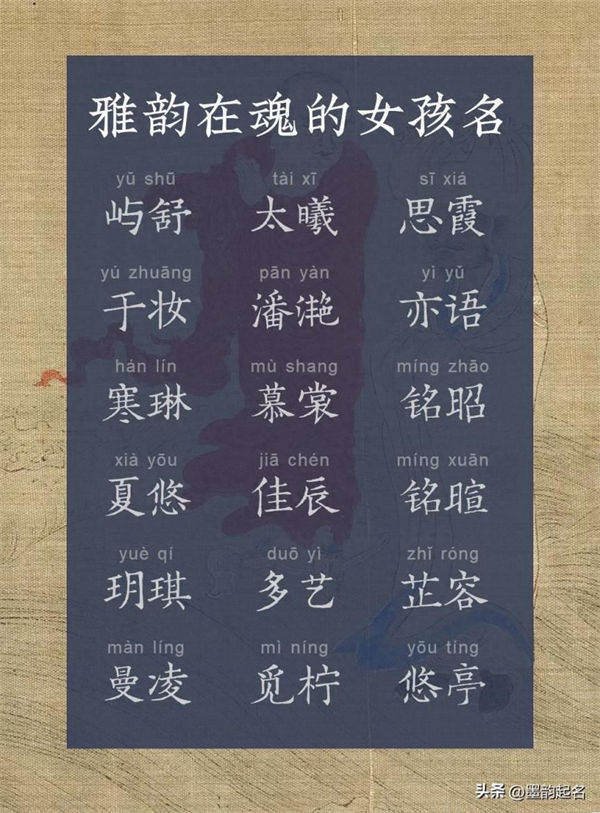 雅韵在魂的女孩名
yǔ shū tài xī sī xiá
屿舒 太曦 思霞
yú zhuāng pān yàn yì yǔ
于妆 潘滟 亦语
hán lín mù shang míng zhāo
寒琳 慕裳 铭昭
xià yōu jiā chén míng xuān
夏悠 佳辰 铭暄
yuè qí duō yì zhǐ róng
玥琪 多艺 芷容
màn líng mì níng yōu tíng
曼凌 觅柠 悠亭
头条 @墨韵起名